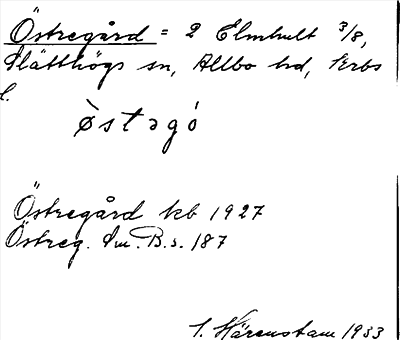 Östregård = 2 Elmhult 3/8,
Slätthögs sn, Allbo hd, Krbs
l.
östəgó
Östregård kb 1927
Östreg. Sm. B.s. 187
S. Härenstam 1933